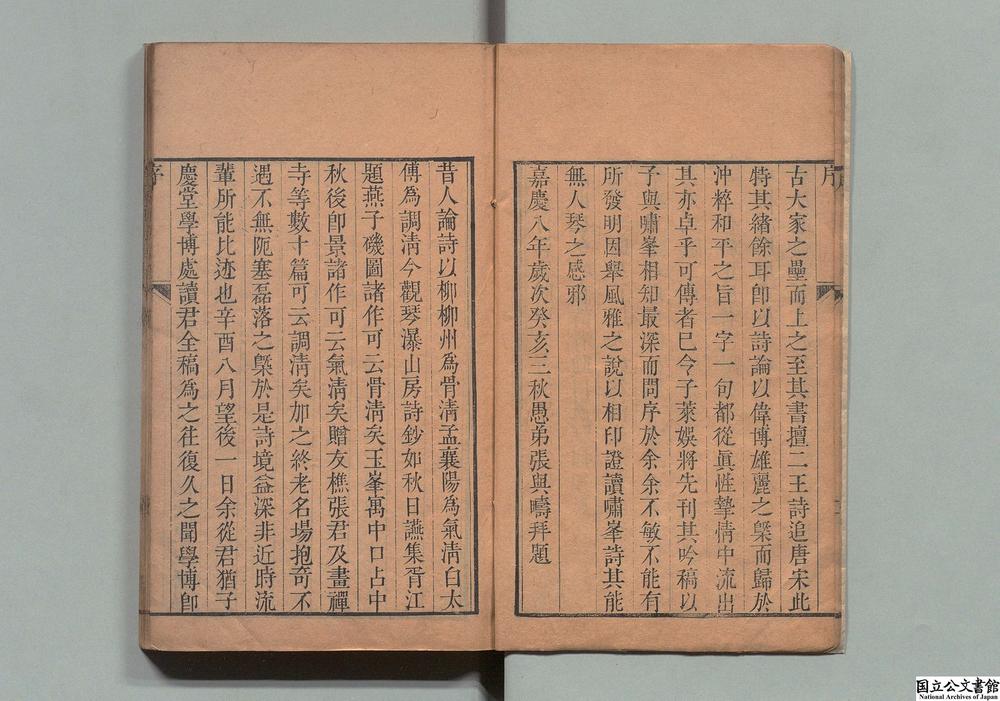 古大家之壘而上之至其書擅二王詩追唐宋此
特其緒餘耳卽以詩論以偉博雄麗之槩而歸於
沖粹和平之旨一字一句都從眞性摯情中流出
其亦卓乎可傳者已今子萊娛將先刊其吟稿以
子與嘯峯相知最深而問序於余余不敏不能有
所發明因舉風雅之說以相印證讀嘯峯詩其能
無人琴之感邪
嘉慶八年歲次癸亥三秋愚弟張與疇拜題
昔人論詩以柳柳州爲骨淸孟襄陽爲氣淸白太
傅爲調淸今觀琴瀑山房詩鈔如秋日讌集胥江
題燕子磯圖諸作可云骨淸矣玉峯寓中口占中
秋後卽景諸作可云氣淸矣贈友樵張君及畫禪
寺等數十篇可云調淸矣加之終老名場抱奇不
遇不無阨塞磊落之槩於是詩境益深非近時流
輩所能比迹也辛酉八月望後一日余從君猶子
慶堂學博處讀君全稿爲之往復久之聞學博卽
国立公文書館
National Archives of Japan